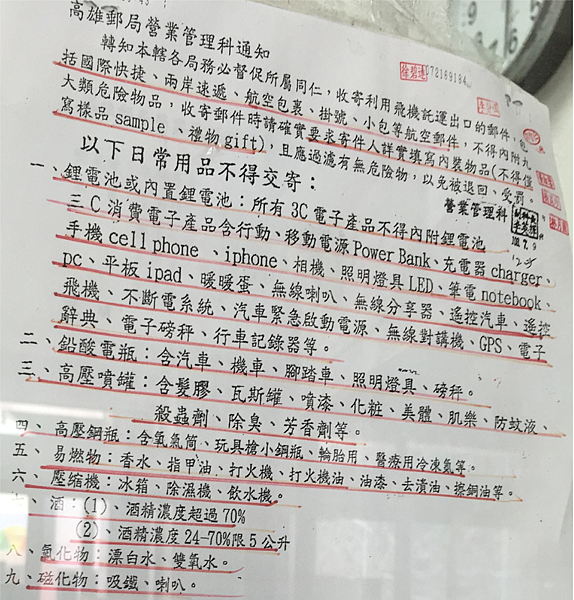 高雄郵局營業管理科通知
轉知本轄各局務必督促所屬同仁，收寄利用飛機託運出口的郵件，包
括國際快捷、兩岸速遞、航空包裹、掛號、小包等航空郵件，不得內附九
大類危險物品，收寄郵件時請確實要求寄件人詳實填寫內裝物品(不得僅
寫樣品sample、禮物gift)，且應過濾有無危險物，以免被退回、受罰。
072169184
營業管理科
以下日常用品不得交寄：
一、鋰電池或內置鋰電池：所有3C電子產品不得內附鋰電池
三C消費電子產品含行動、移動電源Power Bank、充電器charger、
手機cell phone、iphone、相機、照明燈具LED、筆電notebook、
pc、平板ipad、暖暖蛋、無線喇叭、無線分享器、遙控汽車、遙控
飛機、不斷電系統、汽車緊急啟動電源、無線對講機、GPS、電子
辭典、電子磅秤、行車記錄器等。
二、鉛酸電瓶：含汽車、機車、腳踏車、照明燈具、磅秤。
三、高壓噴罐：含髮膠、瓦斯罐、噴漆、化粧、美體、肌樂、防蚊液、
殺蟲劑、除臭、芳香劑等。
四、高壓鋼瓶：含氧氣筒、玩具槍小鋼瓶、輪胎用、醫療用冷凍氮等。
五、易燃物：香水、指甲油、打火機、打火機油、油漆、去漬油、擦銅油等。
六、壓縮機：冰箱、除濕機、飲水機。
、酒：(1)、酒精濃度超過70%
(2)、酒精濃度24-70%限5公升
八、氧化物：漂白水、雙氧水。
九、磁化物：吸鐵、喇叭。